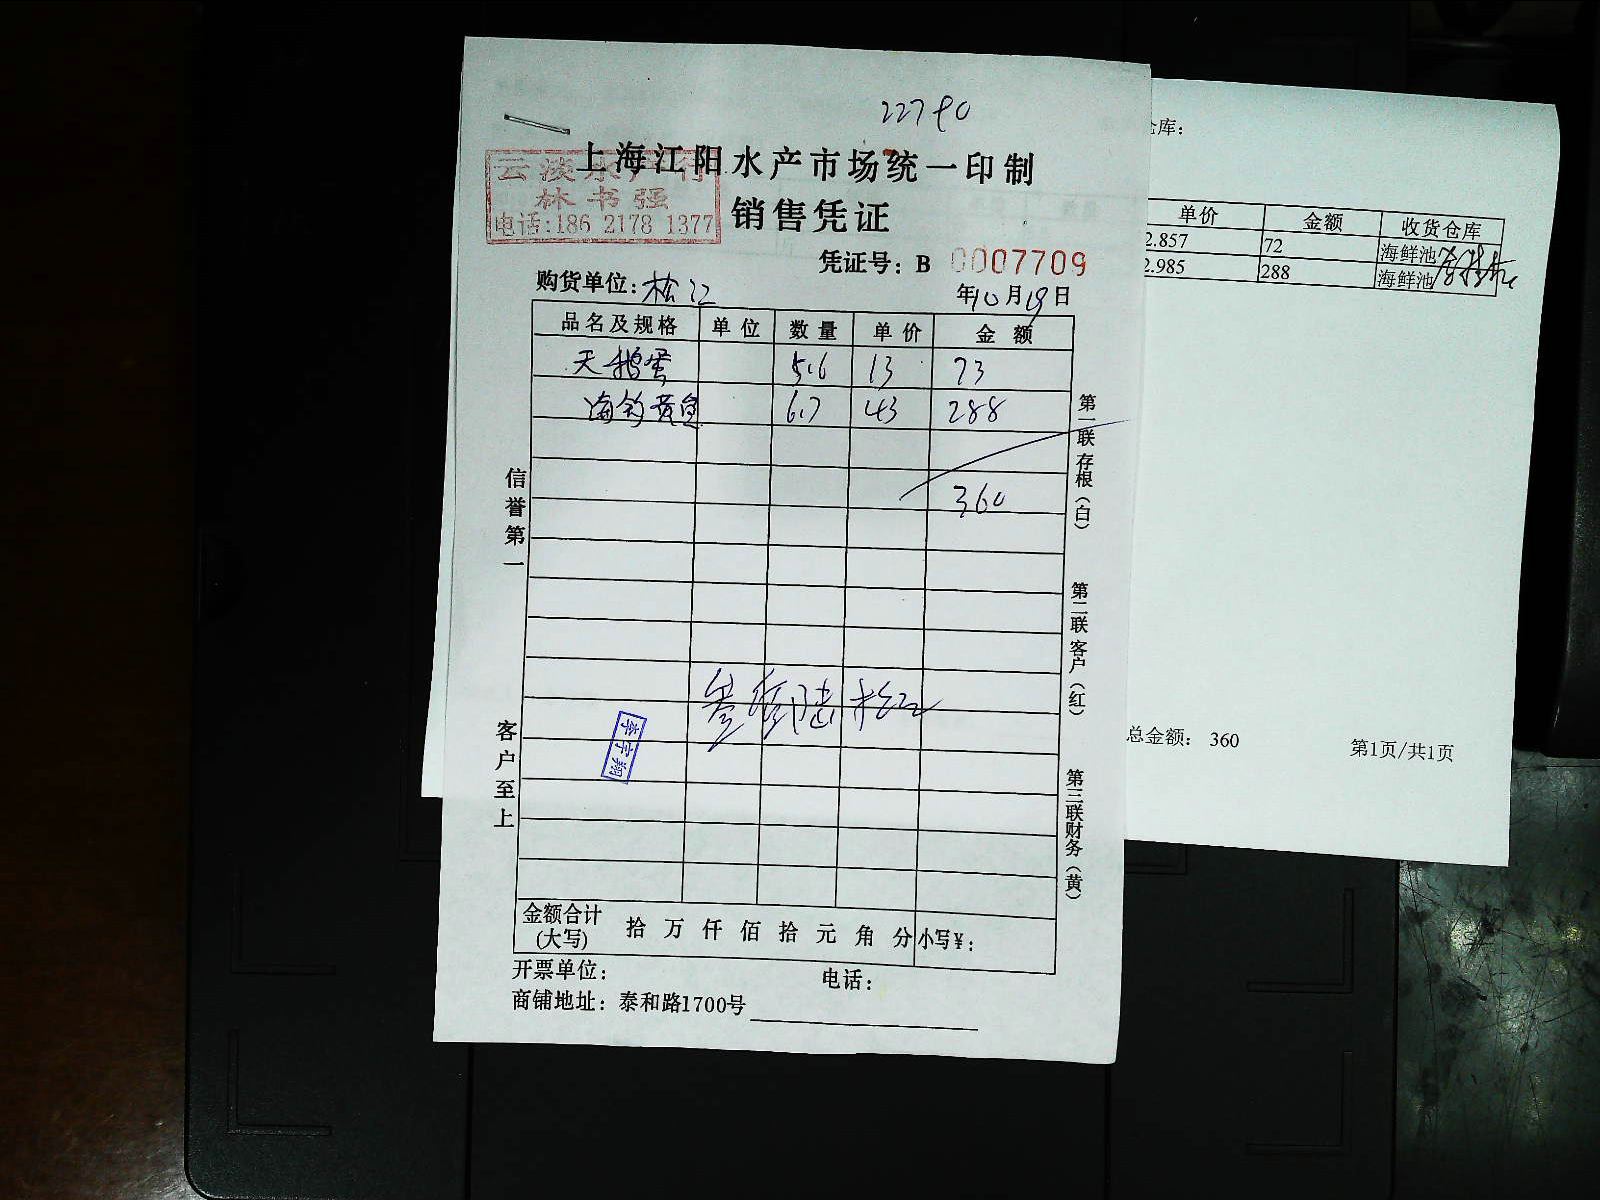 上海江阳水产市场统一印制
云淡水产行
林书强
电话:186 2178 1377
销售凭证
凭证号：B 0007709
购货单位：松江
年10月19日
品名及规格 单位 数量 单价 金额
天鹅蛋 5.6 13 73
海钓黄鱼 6.7 43 288
360
叁佰陆拾
李宇翔
信誉第一
客户至上
第一联存根（白）
第二联客户（红）
第三联财务（黄）
金额合计(大写) 拾 万 仟 佰 拾 元 角 分 小写¥：
开票单位： 电话：
商铺地址：泰和路1700号
仓库：
单价 金额 收货仓库
2.857 72 海鲜池
2.985 288 海鲜池
总金额： 360
第1页/共1页